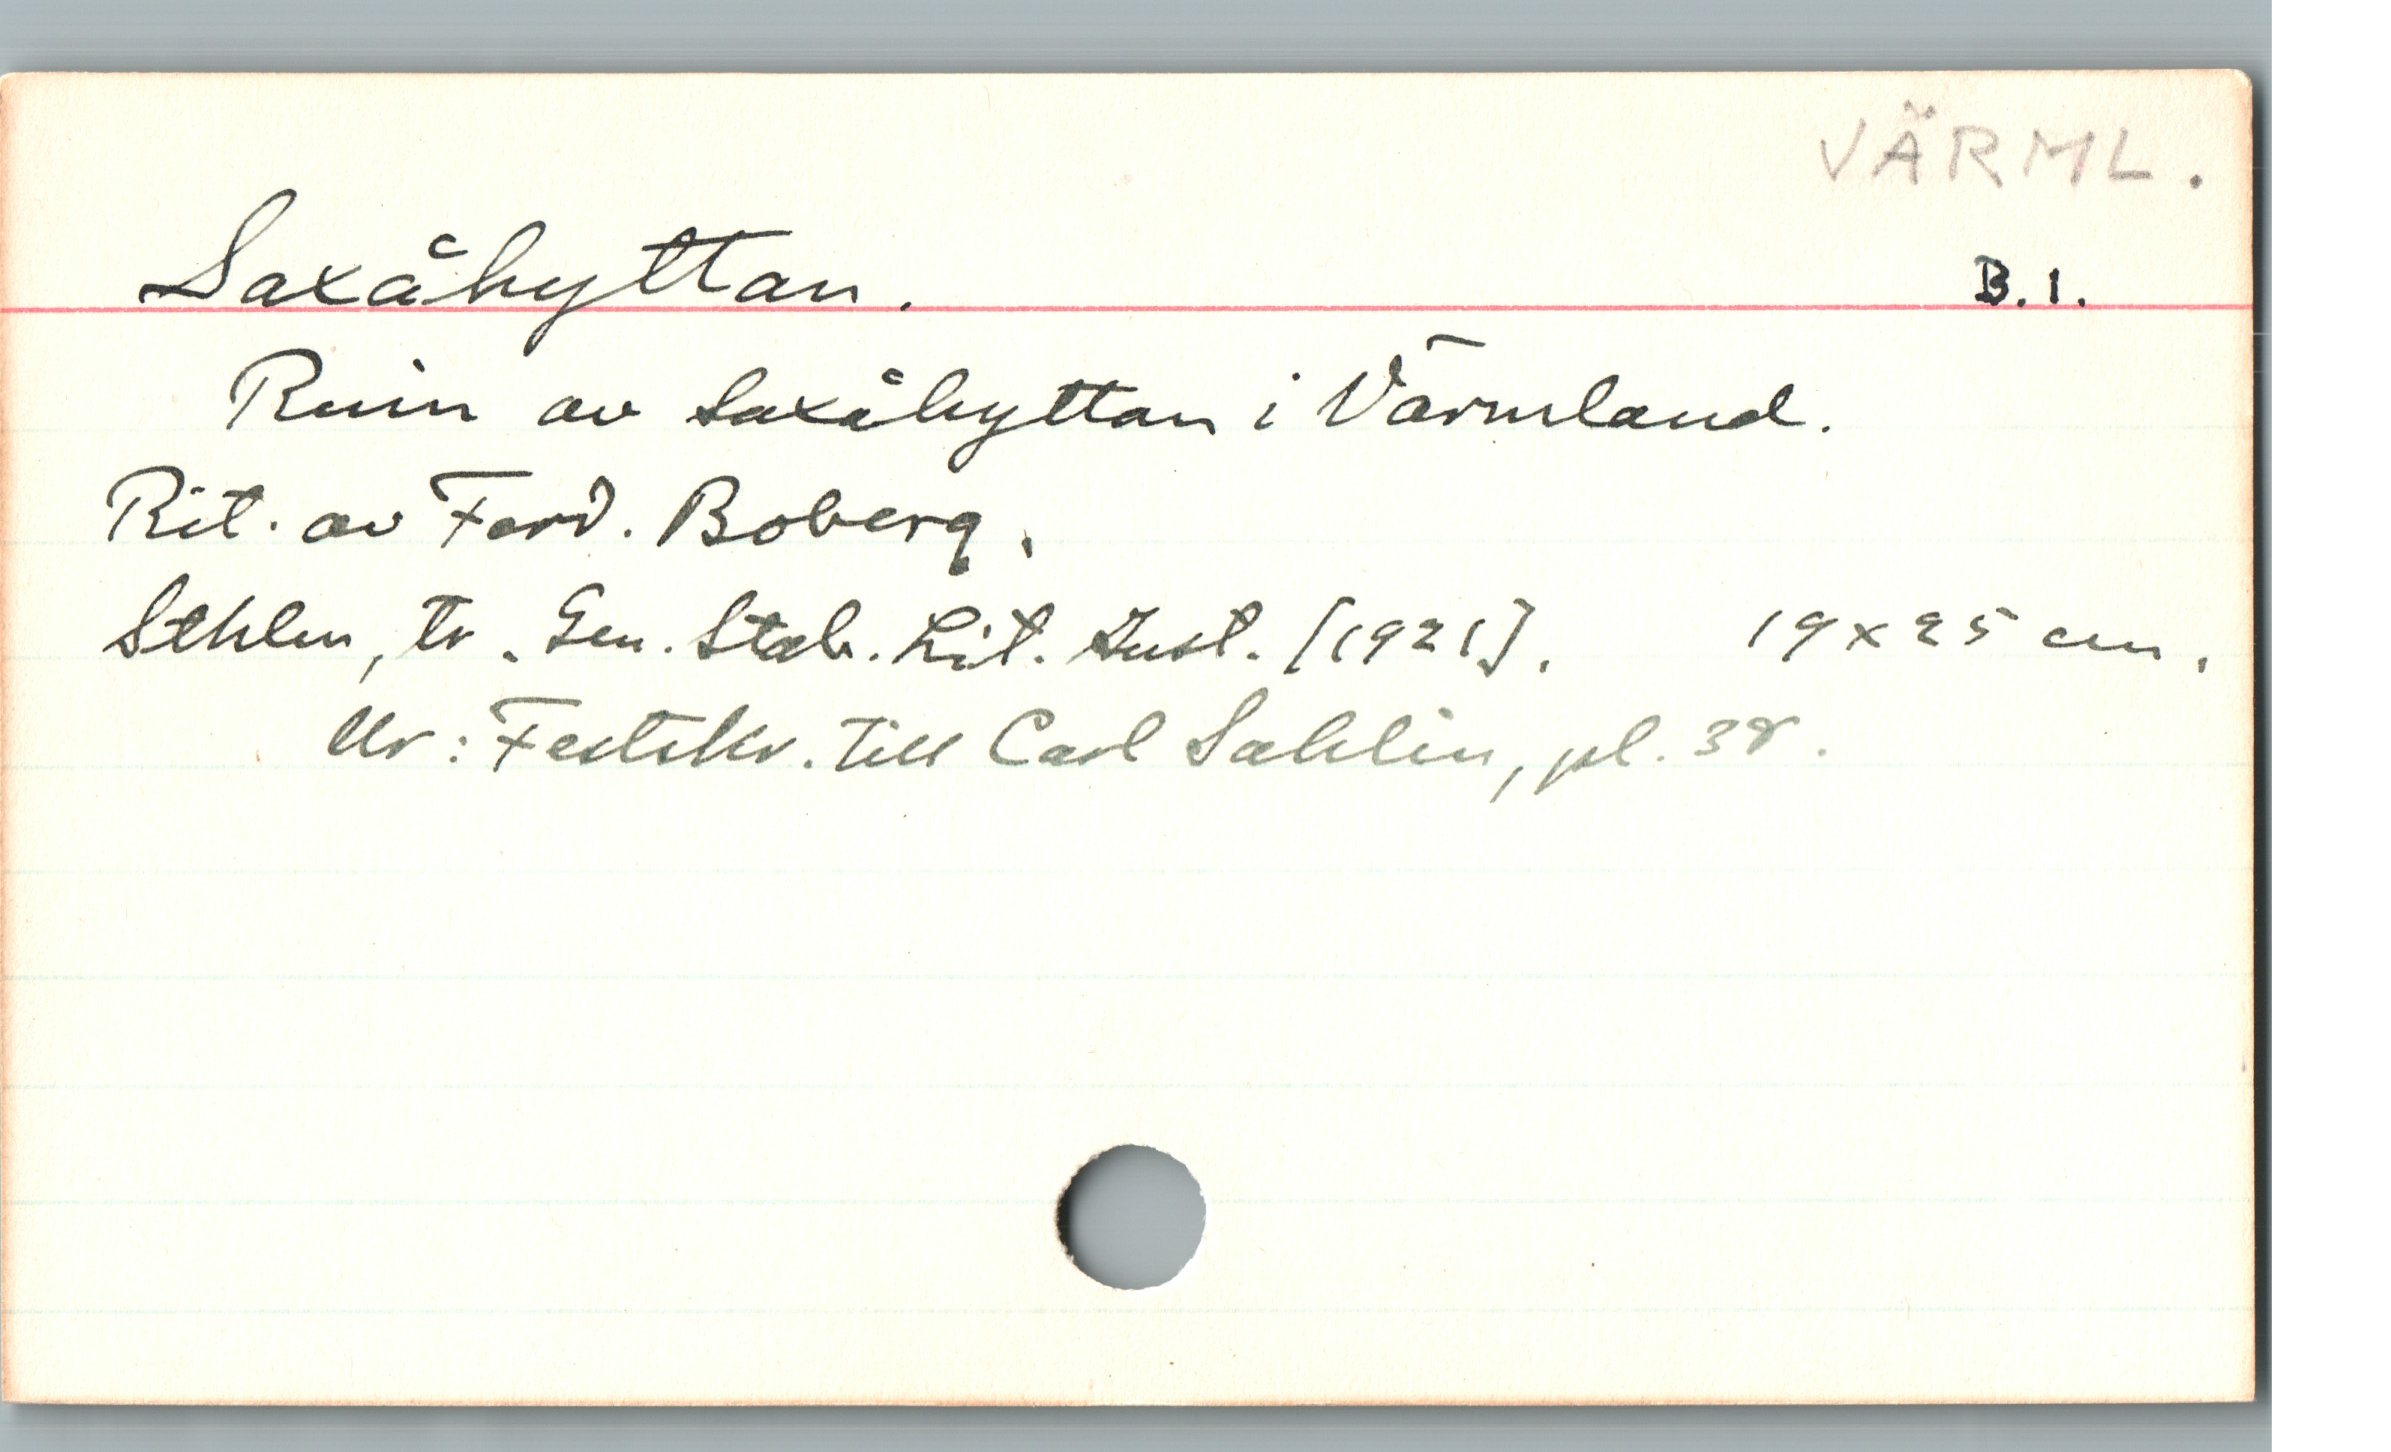 VÄRML.
Saxåhyttan. B. 1.
Ruin av Saxåhyttan i Värmland.
Rit. av Ferd. Boberg.
Sthlm, tr. Gen. Stab. Lit. Inst. [1921]. 19x25 cm.
Ur: Festskr. till Carl Sahlin, pl. 38.